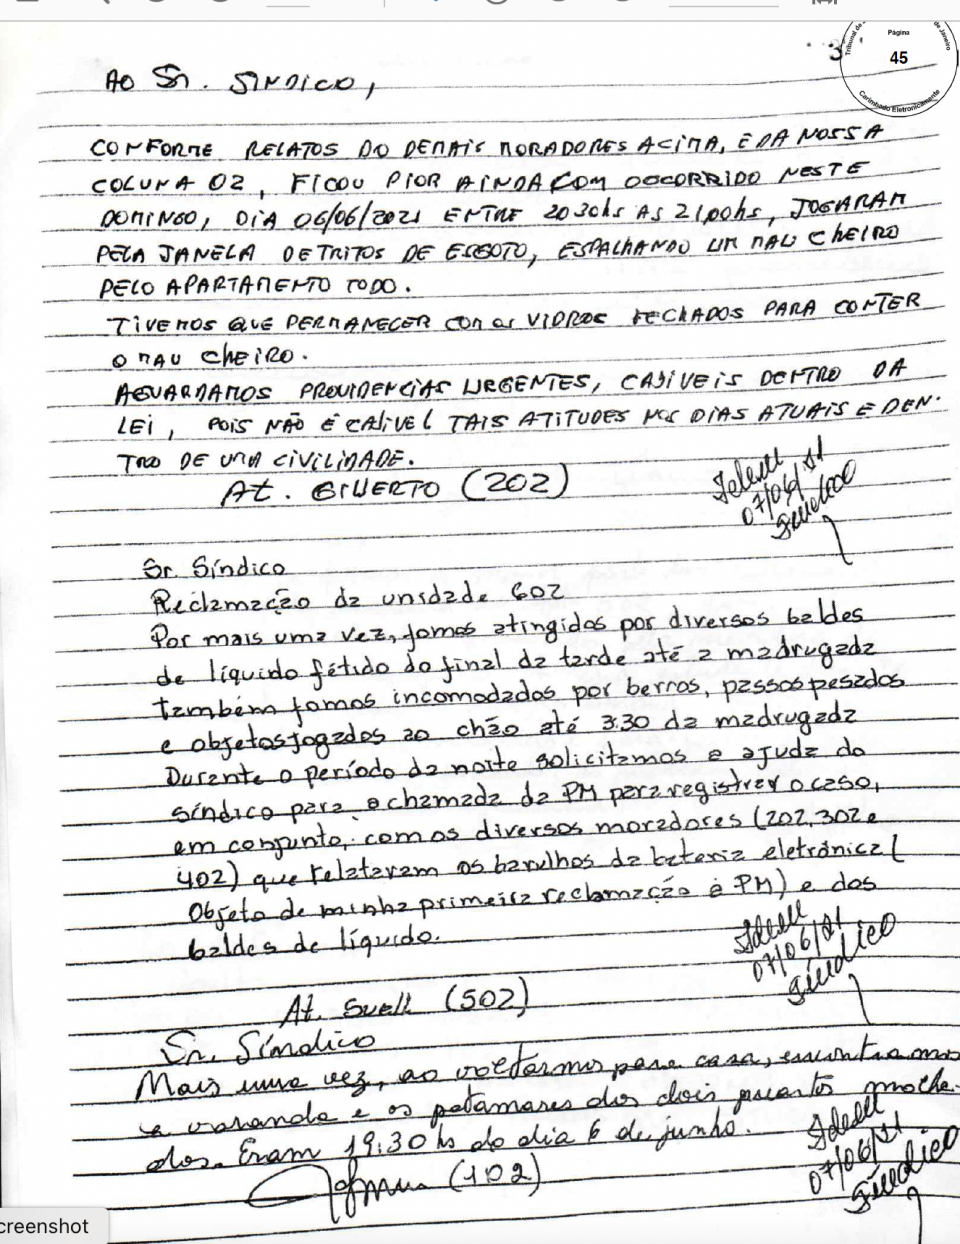 Tribunal de
de Janeiro
Página
45
Carimbado Eletronicamente
3
AO Sr. SINDICO,
CONFORME RELATOS DO DEMAIS MORADORES ACIMA, E DA NOSSA
COLUNA 02, FICOU PIOR AINDA COM OCORRIDO NESTE
DOMINGO, DIA 06/06/2021 ENTRE 20 30hs AS 21,00hs, JOGARAM
PELA JANELA DETRITOS DE ESGOTO, ESPALHANDO UM MAU CHEIRO
PELO APARTAMENTO TODO.
TIVEMOS QUE PERMANECER COM OS VIDROS FECHADOS PARA CONTER
O MAU CHEIRO.
AGUARDAMOS PROVIDENCIAS URGENTES, CABIVEIS DENTRO DA
LEI, POIS NÃO É CABIVEL TAIS ATITUDES NOS DIAS ATUAIS E DEN-
TRO DE UMA CIVILIDADE.
At. GILBERTO (202)
07/06/21
Síndico
Sr. Síndico
Reclamação da unidade 602
Por mais uma vez, fomos atingidos por diversos baldes
de líquido fétido do final da tarde até a madrugada
também fomos incomodados por berros, passos pesados
e objetos jogados ao chão até 3:30 da madrugada
Durante o período da noite solicitamos a ajuda do
síndico para a chamada da PM para registrar o caso,
em conjunto, com os diversos moradores (202, 302 e
402) que relataram os barulhos da bateria eletrônica (
Objeto de minha primeira reclamação à PM) e dos
baldes de líquido.
07/06/21
Síndico
At. Suell (502)
Sr. Síndico
Mais uma vez, ao voltarmos para casa, encontramos
a varanda e os patamares dos dois quartos molha-
dos. Eram 19:30 hs do dia 6 de junho.
(102)
07/06/21
Síndico
creenshot